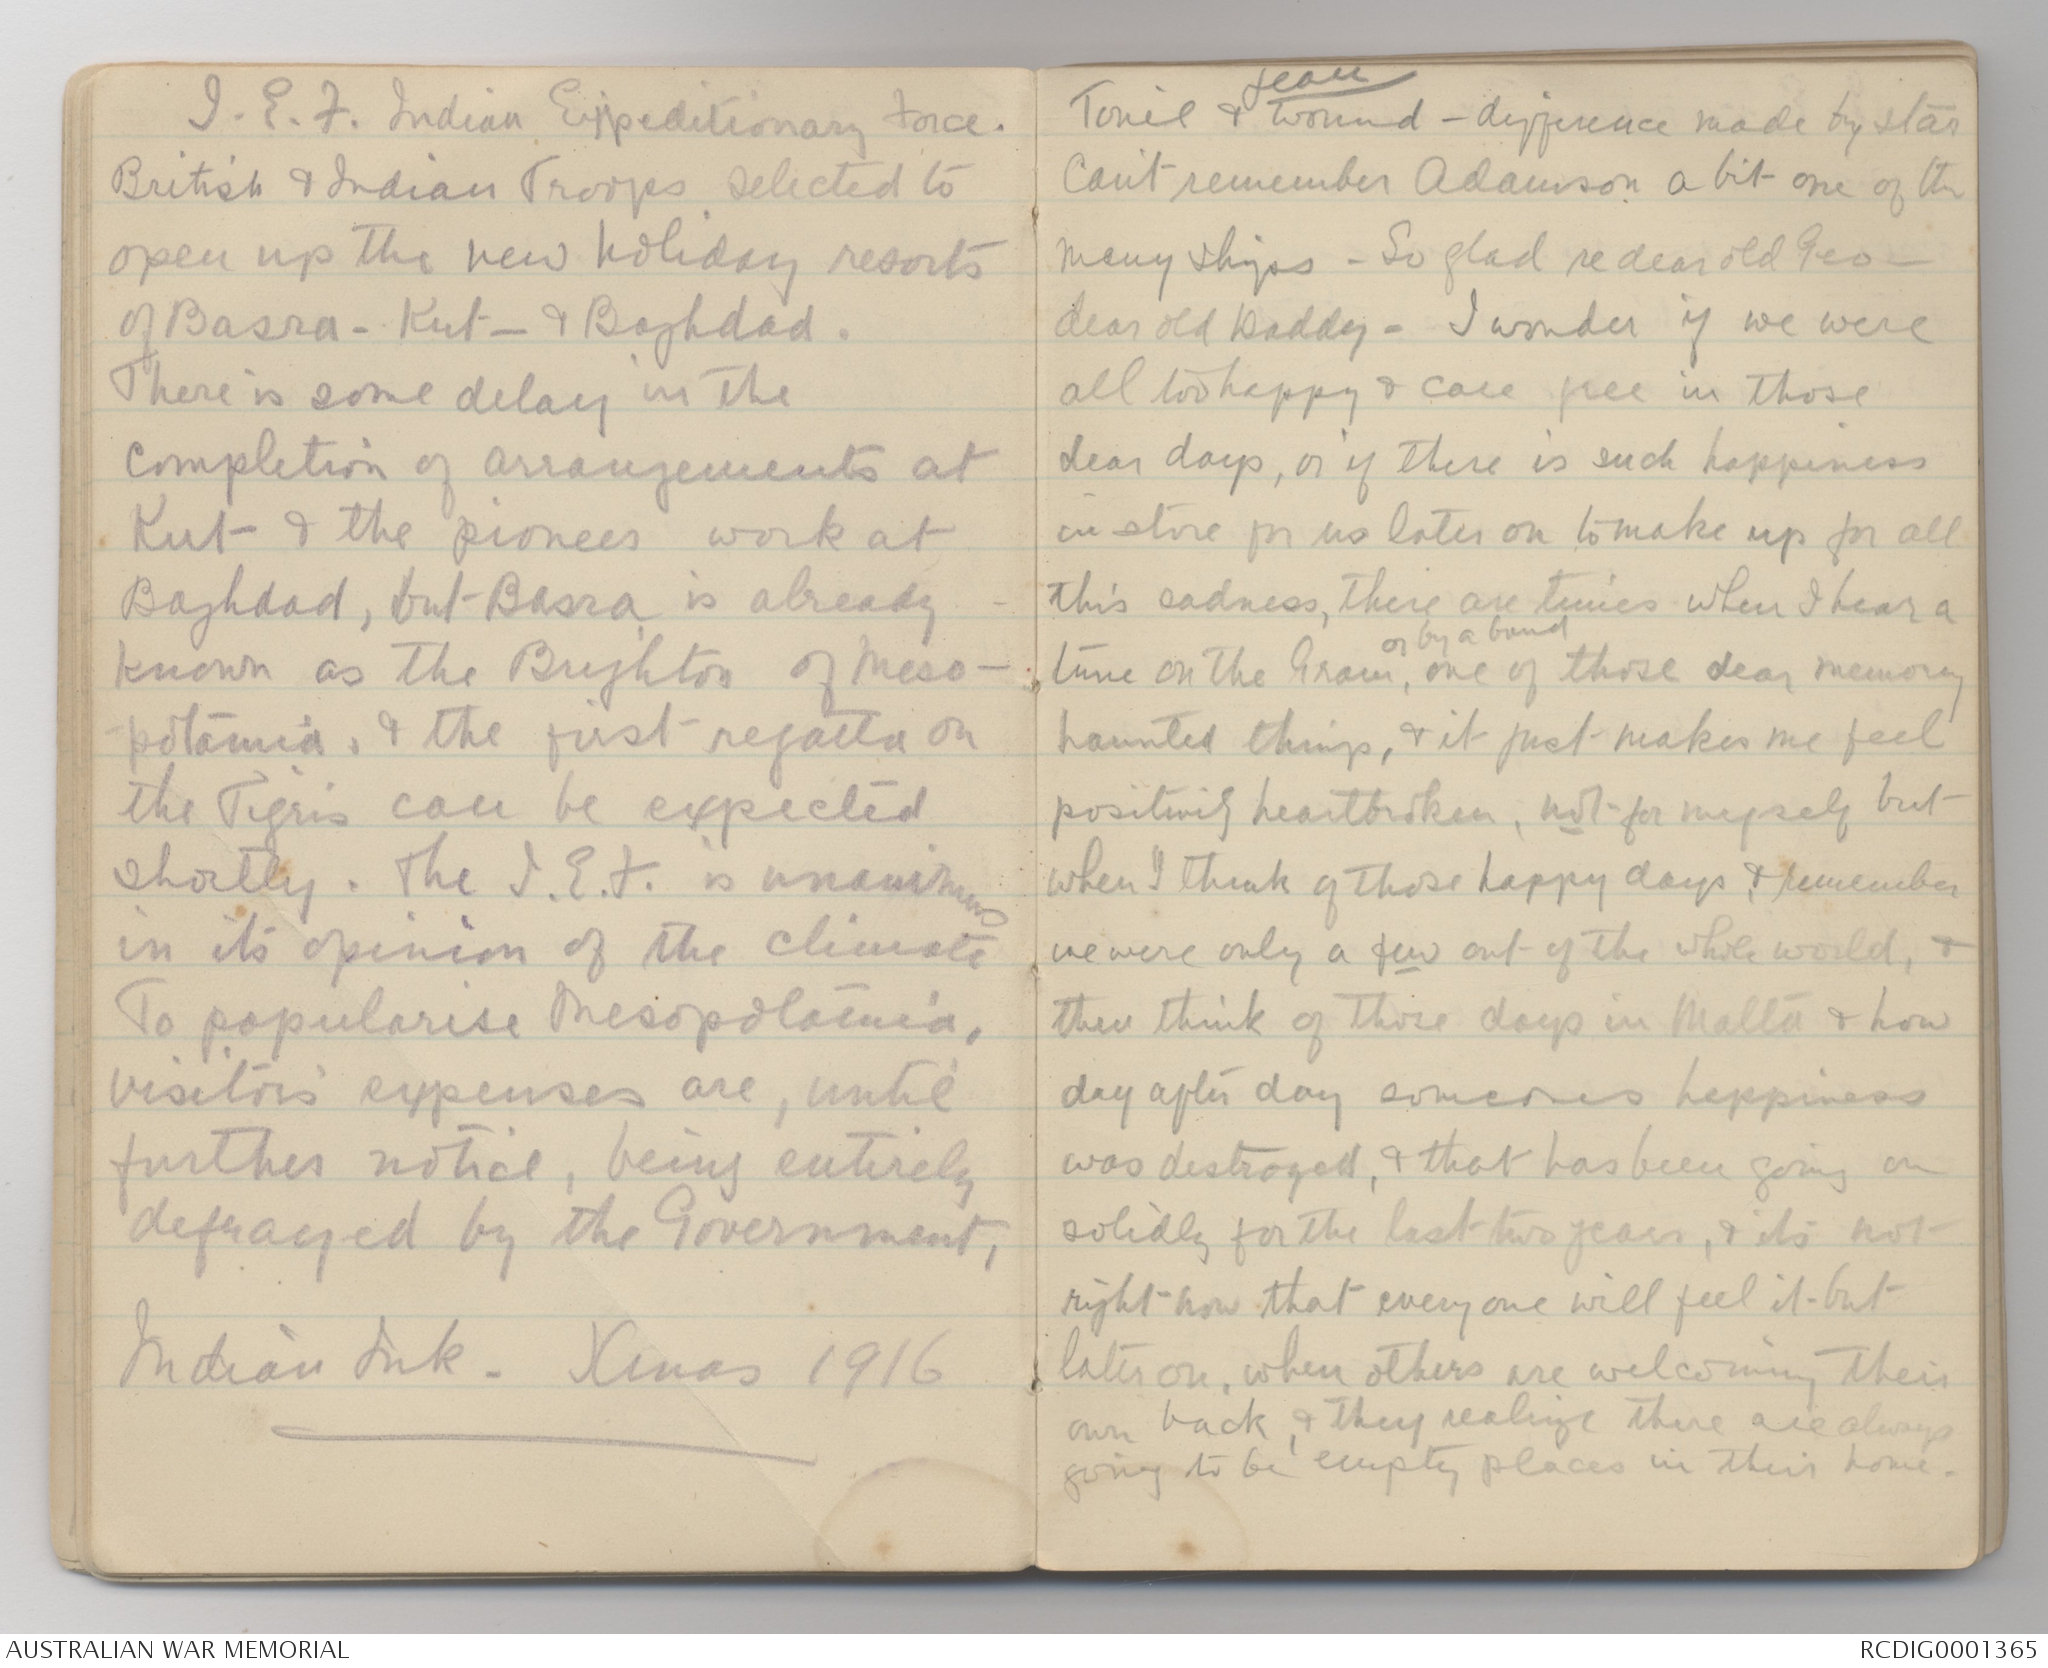 I. E. F. Indian Expeditionary Force.
British & Indian Troops selected to
open up the new holiday resorts
of Basra - Kut - & Baghdad.
There is some delay in the
completion of arrangements at
Kut & the pioneer work at
Baghdad, but Basra is already
known as the Brighton of Meso-
-potamia. & the first regatta on
the Tigris can be expected
shortly. The I.E.F. is unanimous
in its opinion of the climate
To popularise Mesopotamia,
visitors expenses are, until
further notice, being entirely
defrayed by the Government,
Indian Ink - Xmas 1916
& wound - difference made by star
Can't remember Adamson a bit one of the
many ships - So glad re dear old Geo -
dear old Daddy - I wonder if we were
all too happy & care free in those
dear days, or if there is such happiness
in store for us later on to make up for all
this sadness, there are times when I hear a
or by a band
tune on the Gram, one of those dear memory
haunted things, & it just makes me feel
positively heartbroken, not for myself but
when I think of those happy days & remember
we were only a few out of the whole world, &
then think of those days in Malta & how
day after day someones happiness
was destroyed, & that has been going on
solidly for the last two years, & its not
right now that everyone will feel it but
later on, when others are welcoming their
own back, & they realize there are always
going to be empty places in their home.
AUSTRALIAN WAR MEMORIAL
RCDIG0001365